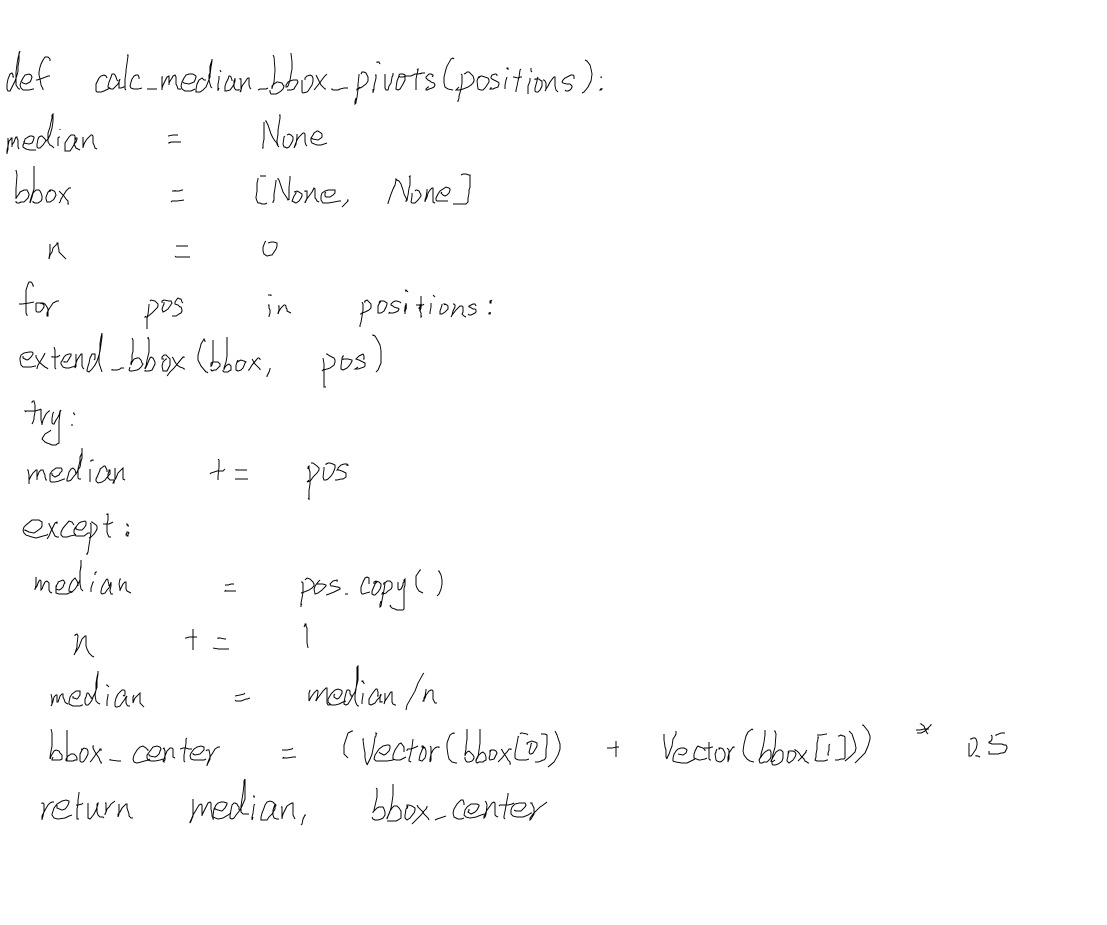 def calc_median_bbox_pivots(positions):
median = None
bbox = [None, None]
n = 0
for pos in positions:
extend_bbox(bbox, pos)
try:
median += pos
except:
median = pos.copy()
n += 1
median = median/n
bbox_center = (Vector(bbox[0]) + Vector(bbox[1])) * 0.5
return median, bbox_center